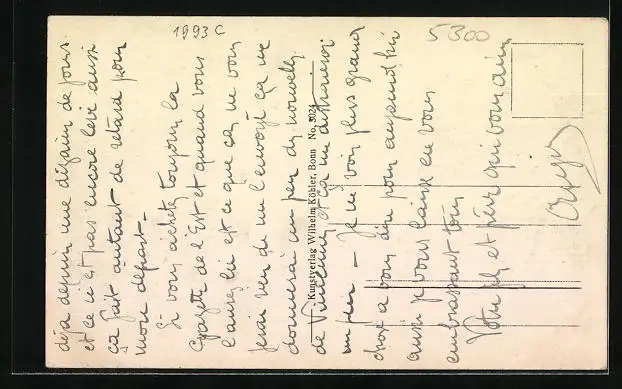 1993 C
5300
déjà depuis une dizaine de jours.
et ce n'est pas encore levé aussi
ça fait autant de retard pour
mon départ —
Si vous achetez toujours la
Gazette de l'Est et quand vous
l'avez lu est ce que ça ne vous
ferai rien de me l'envoyé ça me
donnerai un peu des nouvelles
de et ça me
un peu — Je ne vois plus grand
chose a vous dire pour aujourd'hui
aussi je vous laisse en vous
embrassant tous
Votre fils et frère qui vous aime
Kunstverlag Wilhelm Köhler, Bonn No. 3024